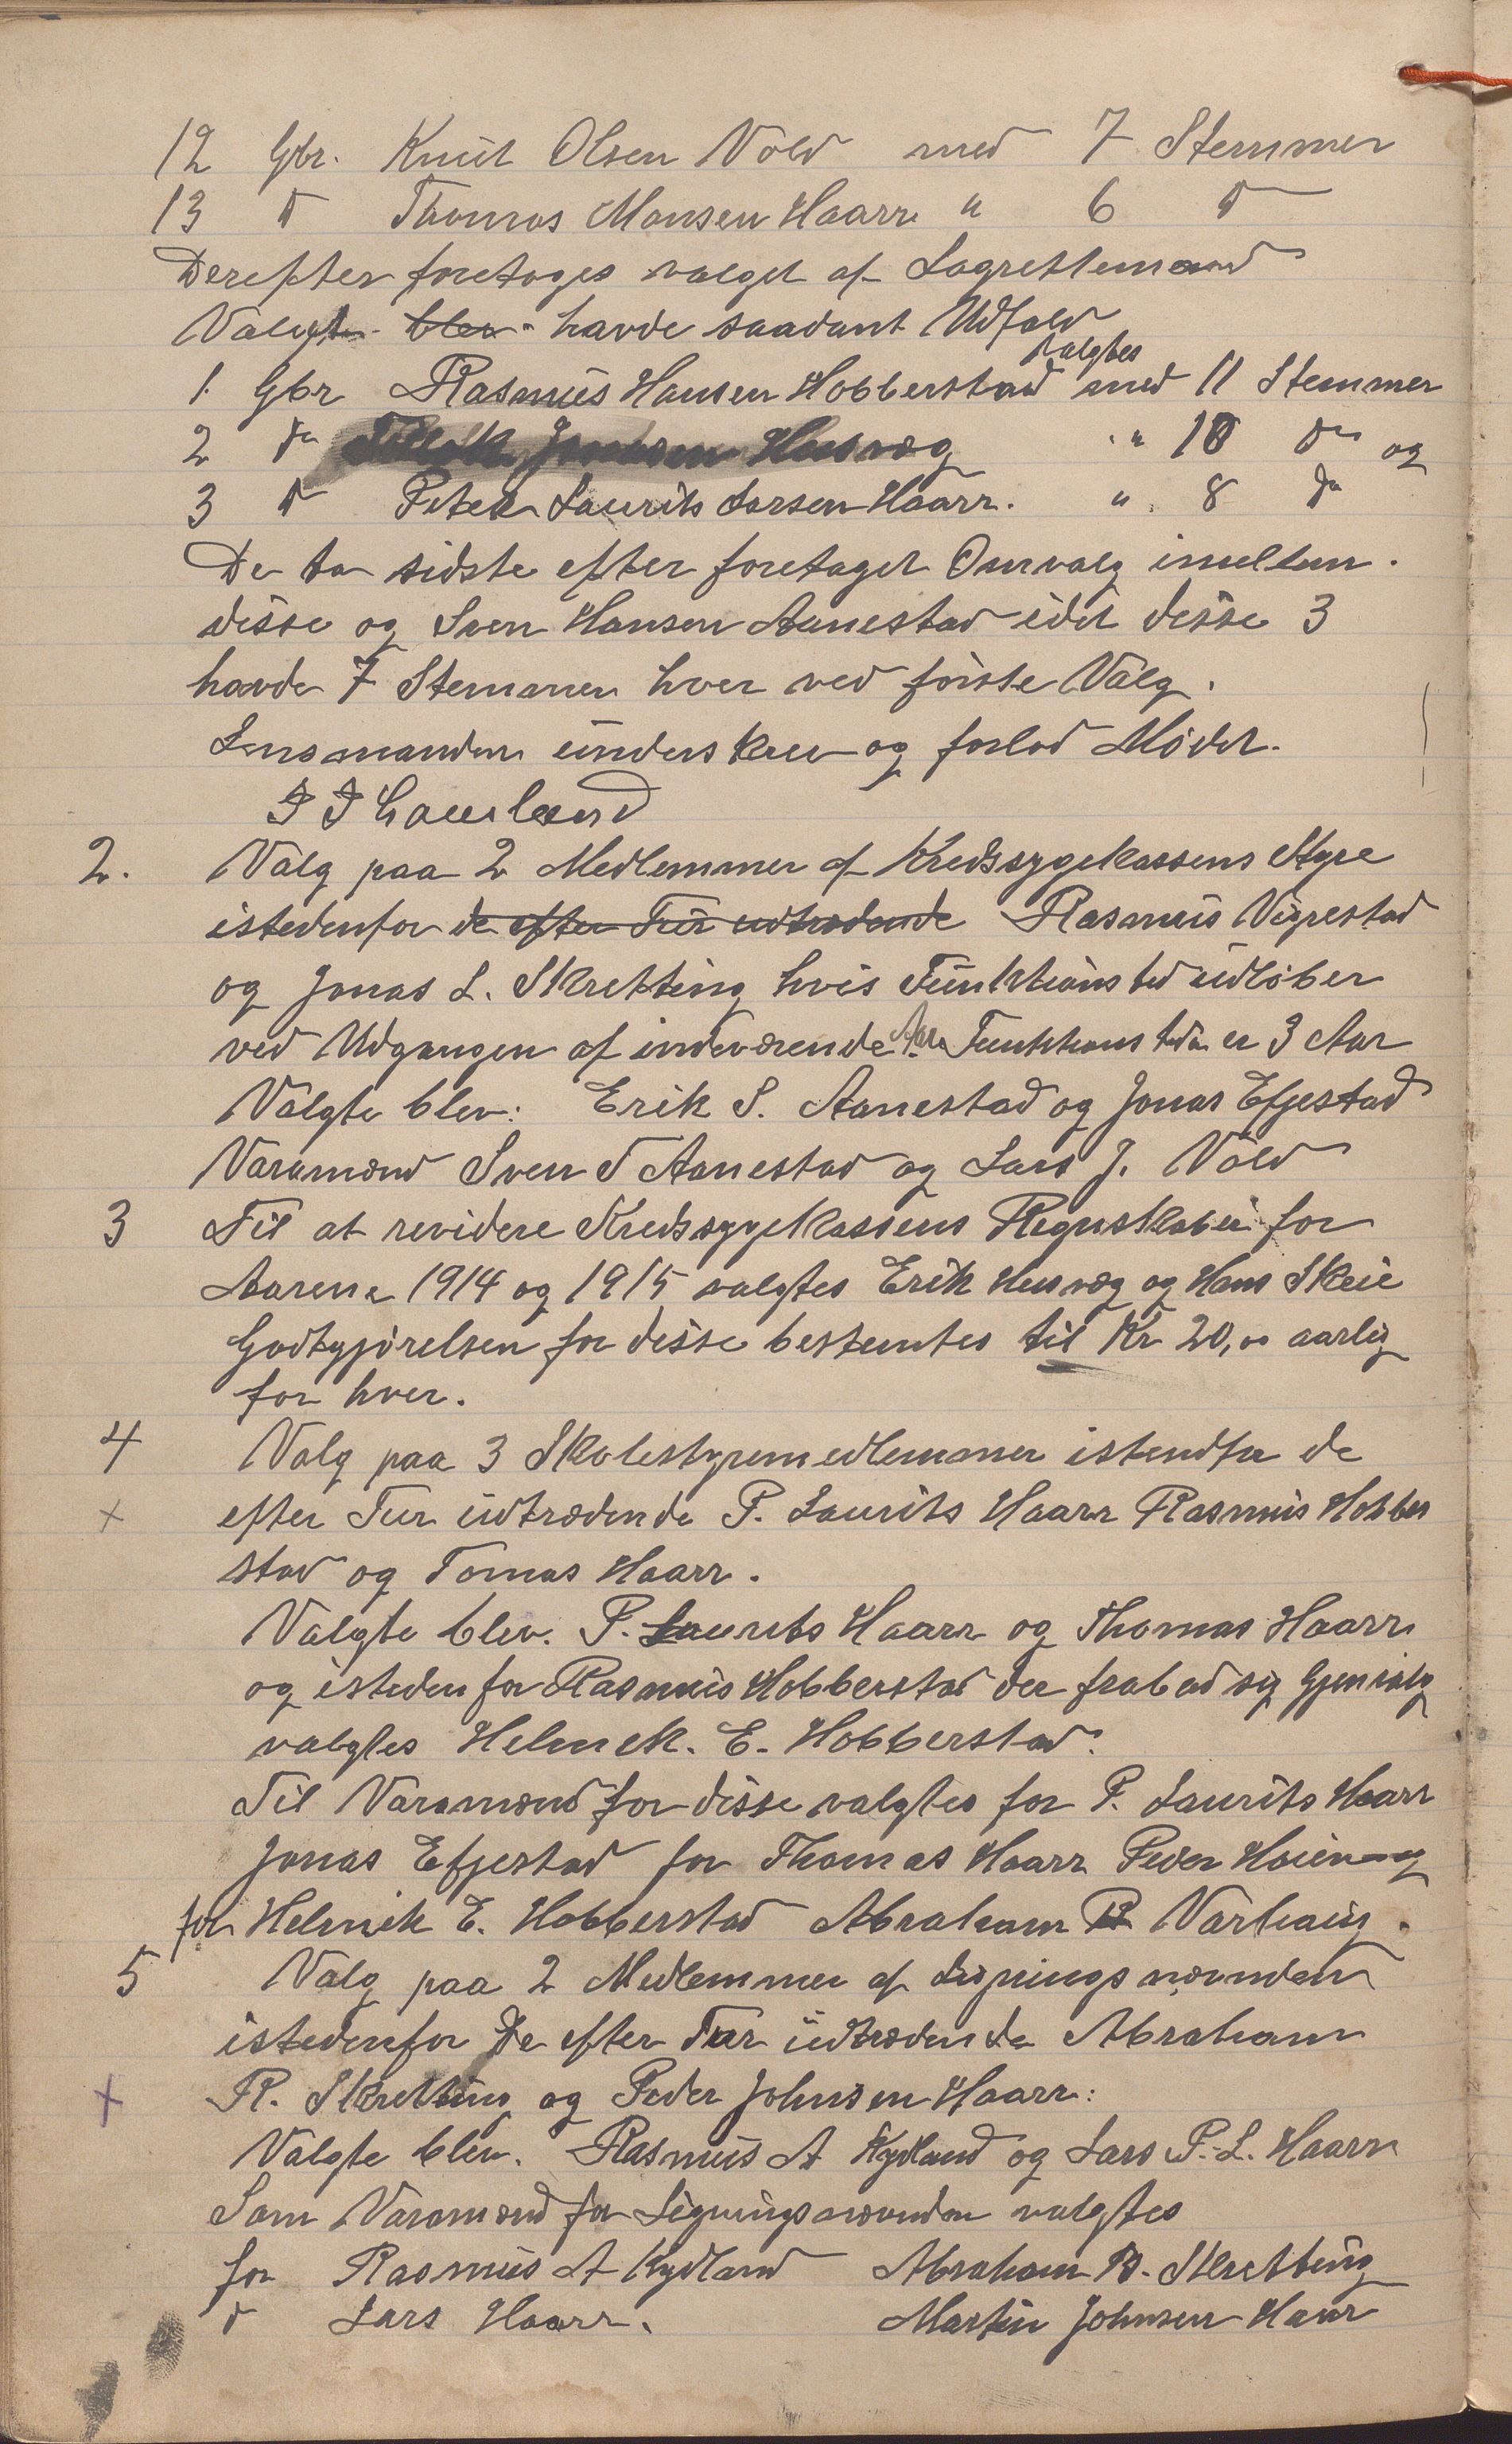 12 Gbr. Knut Olsen Vold med 7 Stemmer
13 D Thomas Monsen Haarr " 6 D
Derefter foretoges valget af Lagrettemænd
Valget blev havde saadant Udfald
valgtes
1. Gbr Rasmus Hansen Hobberstad med 11 Stemmer
2 Do Tollek Jonasen Husvæg " 10 Do og
3 D Peter Laurits Larsen Haarr. " 8 Do
De to sidste efter foretaget Omvalg imellem
disse og Sven Hansen Aanestad idet disse 3
havde 7 Stemmer hver ved første Valg.
Lensmanden underskrev og forlod Mødet.
J J Lauland
2. Valg paa 2 Medlemmer af Kredssygekassens Styre
istedenfor de efter Tur udtrædende Rasmus Vigrestad
og Jonas L. Skretting hvis Funktionstid udløber
ved Udgangen af indeværende Aar. Funktionstiden er 3 Aar
Valgte blev: Erik S. Aanestad og Jonas Efjestad
Varamænd Sven T Aanestad og Lars J. Vold
3 Til at revidere Kredssygekassens Regnskaber for
Aarene 1914 og 1915 valgtes Erik Husvæg og Hans Skeie
Godtgjørelsen for disse bestemtes til Kr 20,00 aarlig
for hver.
4 Valg paa 3 Skolestyremedlemmer istendfor de
x efter Tur udtrædende P. Laurits Haarr Rasmus Hobber
stad og Tomas Haarr.
Valgte blev. P. Laurits Haarr og Thomas Haarr
og istedenfor Rasmus Hobberstad der frabad sig Gjenvalg
valgtes Helmek. E. Hobberstad.
Til Varamænd for disse valgtes for P. Laurits Haarr
Jonas Efjestad for Thomas Haarr Peder Høien og
for Helmik E. Hobberstad Abraham B Varhaug.
5 Valg paa 2 Medlemmer af Ligningsnævnden
istedenfor De efter Tur udtrædende Abraham
x R. Skretting og Peder Johnsen Haarr:
Valgte blev. Rasmus A Kydland og Lars P. L. Haarr
Som Varamænd for Ligningsnævnden valgtes
for Rasmus A Kydland Abraham R. Skretting
D Lars Haarr. Martin Johnsen Haarr